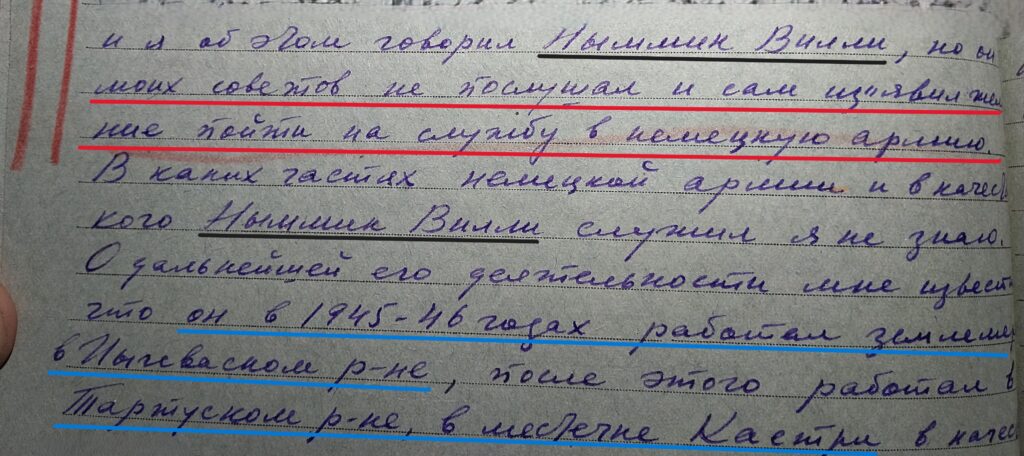 и я об этом говорил Ныммик Вилли, но он
моих советов не послушал и сам изъявил жела
ние пойти на службу в немецкую армию.
В каких частях немецкой армии и в качес
кого Ныммик Вилли служил я не знаю.
О дальнейшей его деятельности мне извест
что он в 1945-46 годах работал землеме
в Йыгеваском р-не, после этого работал в
Тартуском р-не, в местечке Кастри в качес